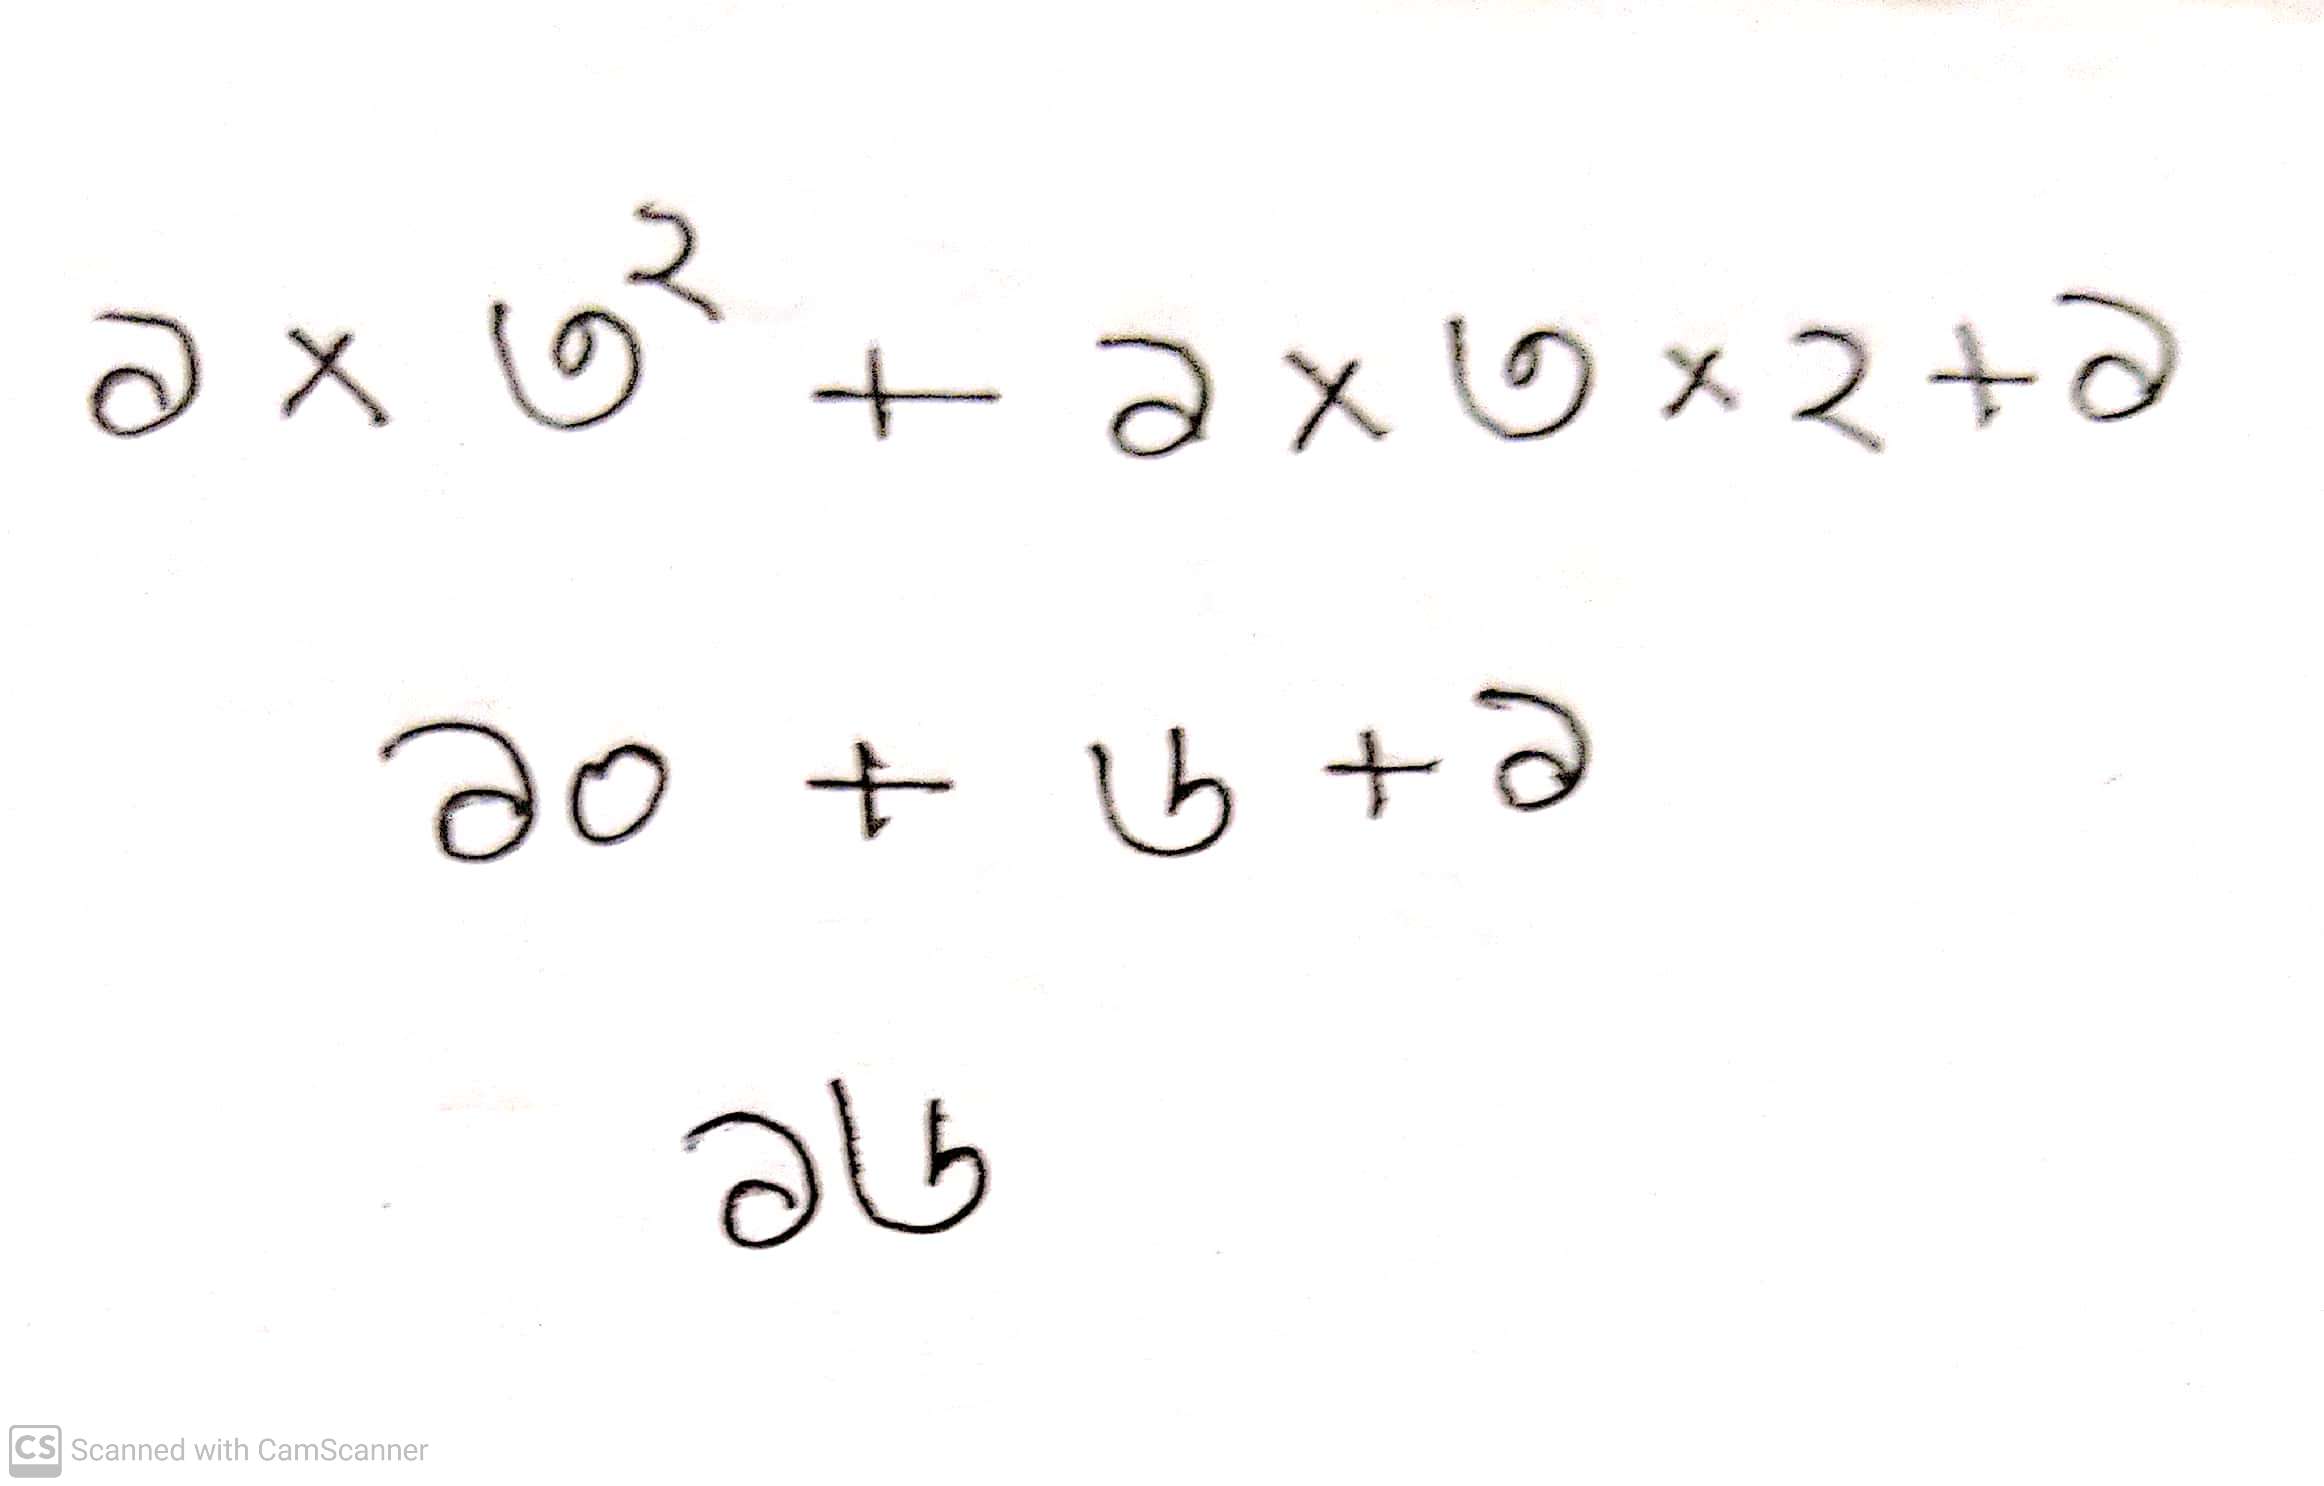 ১ × ৩² + ১ × ৩ × ২ + ১
১০ + ৬ + ১
১৬
CS Scanned with CamScanner